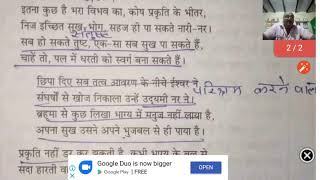 इतना कुछ है भरा विभव का, कोष प्रकृति के भीतर,
निज इच्छित सुख, भोग, सहज हो पा सकते नारी-नर।
सन्तुष्ट
सब हो सकते तुष्ट, एक-सा सब सुख पा सकते हैं,
चाहें तो, पल में धरती को स्वर्ग बना सकते हैं।
2 / 2
छिपा दिए सब तत्व आवरण के नीचे ईश्वर ने
संघर्षों से खोज निकाला उन्हें उद्यमी नर ने।
परिश्रम करने
ब्रह्मा से कुछ लिखा भाग्य में मनुज नहीं लाया है,
अपना सुख उसने अपने भुजबल से ही पाया है।
प्रकृति नहीं डर कर झुकती है कभी भाग्य के बल से
सदा हारती
Google Duo is now bigger
Google Play
FREE
OPEN